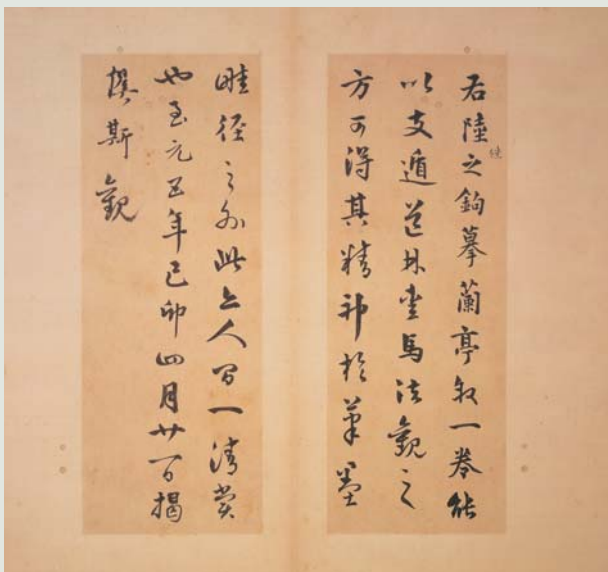 右陸之繼鉤摹蘭亭叙一卷能
以支遁道林愛馬法觀之
方可得其精神於筆墨
畦徑之外此亦人間一清賞
也至元五年己卯四月廿一日揭
傒斯觀